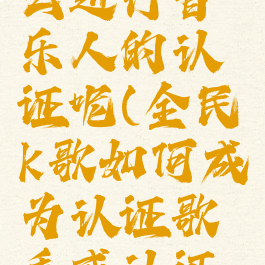 么进行音
乐人的认
证呢(全民
k歌如何成
为认证歌
手或认证